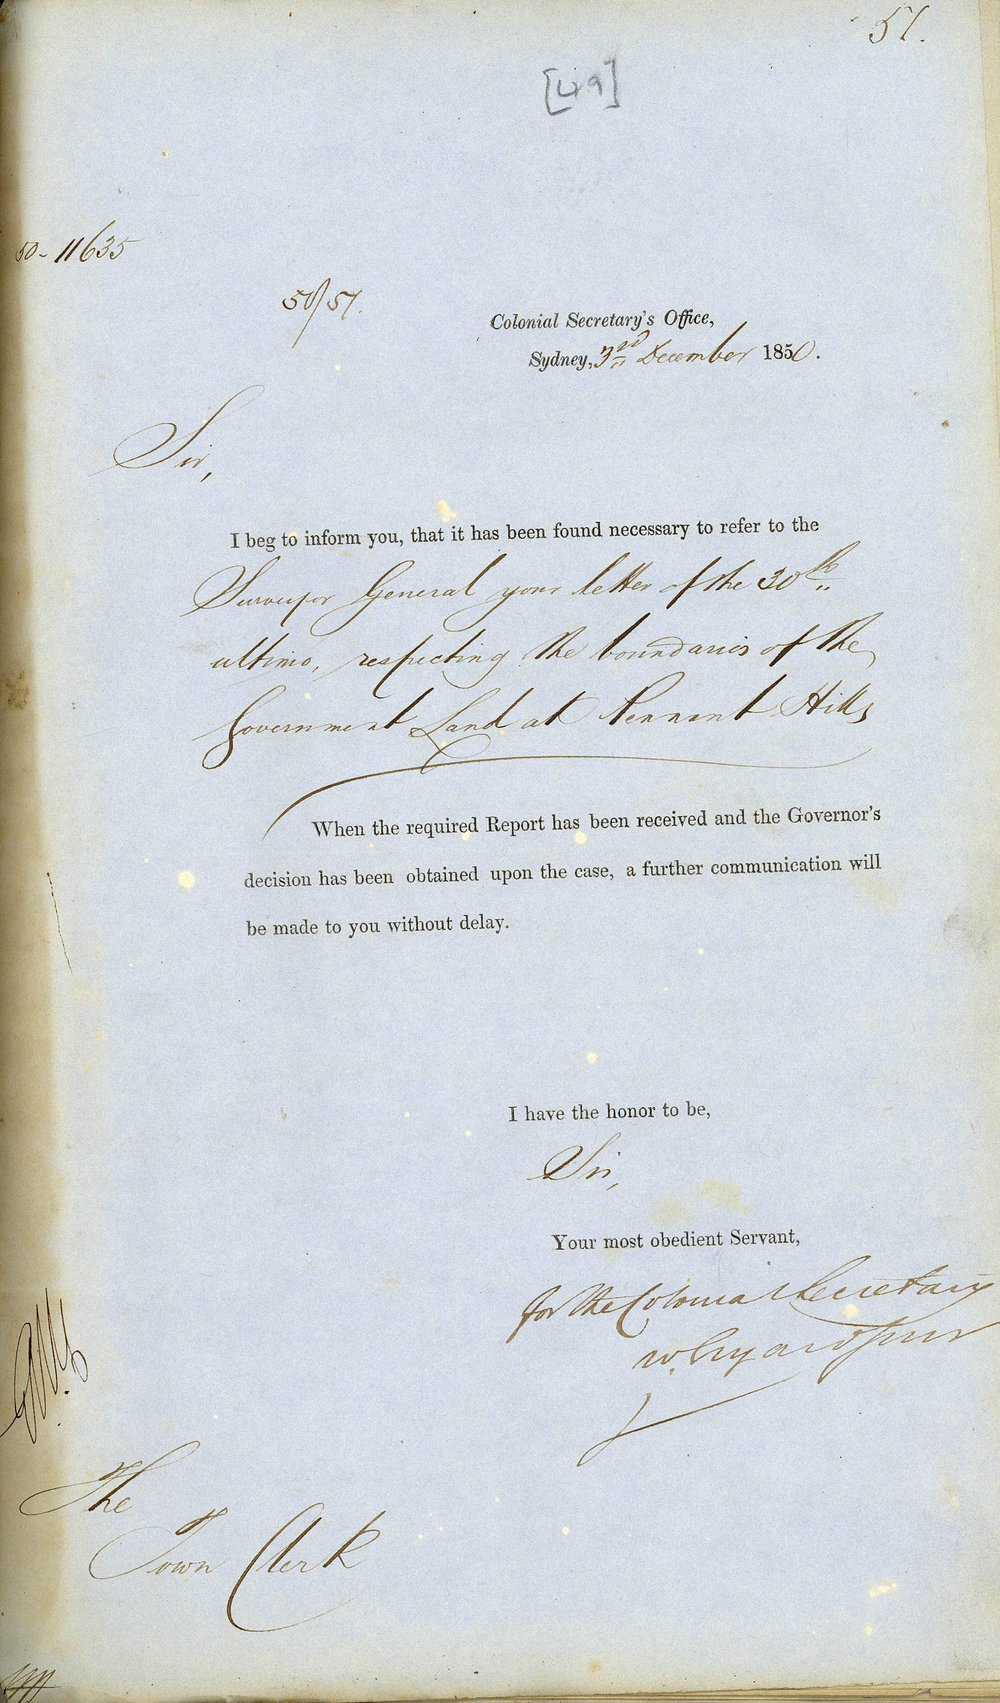 51.
[49]
50-11635
50/51.
Colonial Secretary's Office,
Sydney, 3rd December 1850.
Sir,
I beg to inform you, that it has been found necessary to refer to the
Surveyor General your letter of the 30th
ultimo, respecting the boundaries of the
Government Land at Pennant Hills
When the required Report has been received and the Governor's
decision has been obtained upon the case, a further communication will
be made to you without delay.
I have the honor to be,
Sir,
Your most obedient Servant,
for the Colonial Secretary
W. Elyard Junr
The
Town Clerk